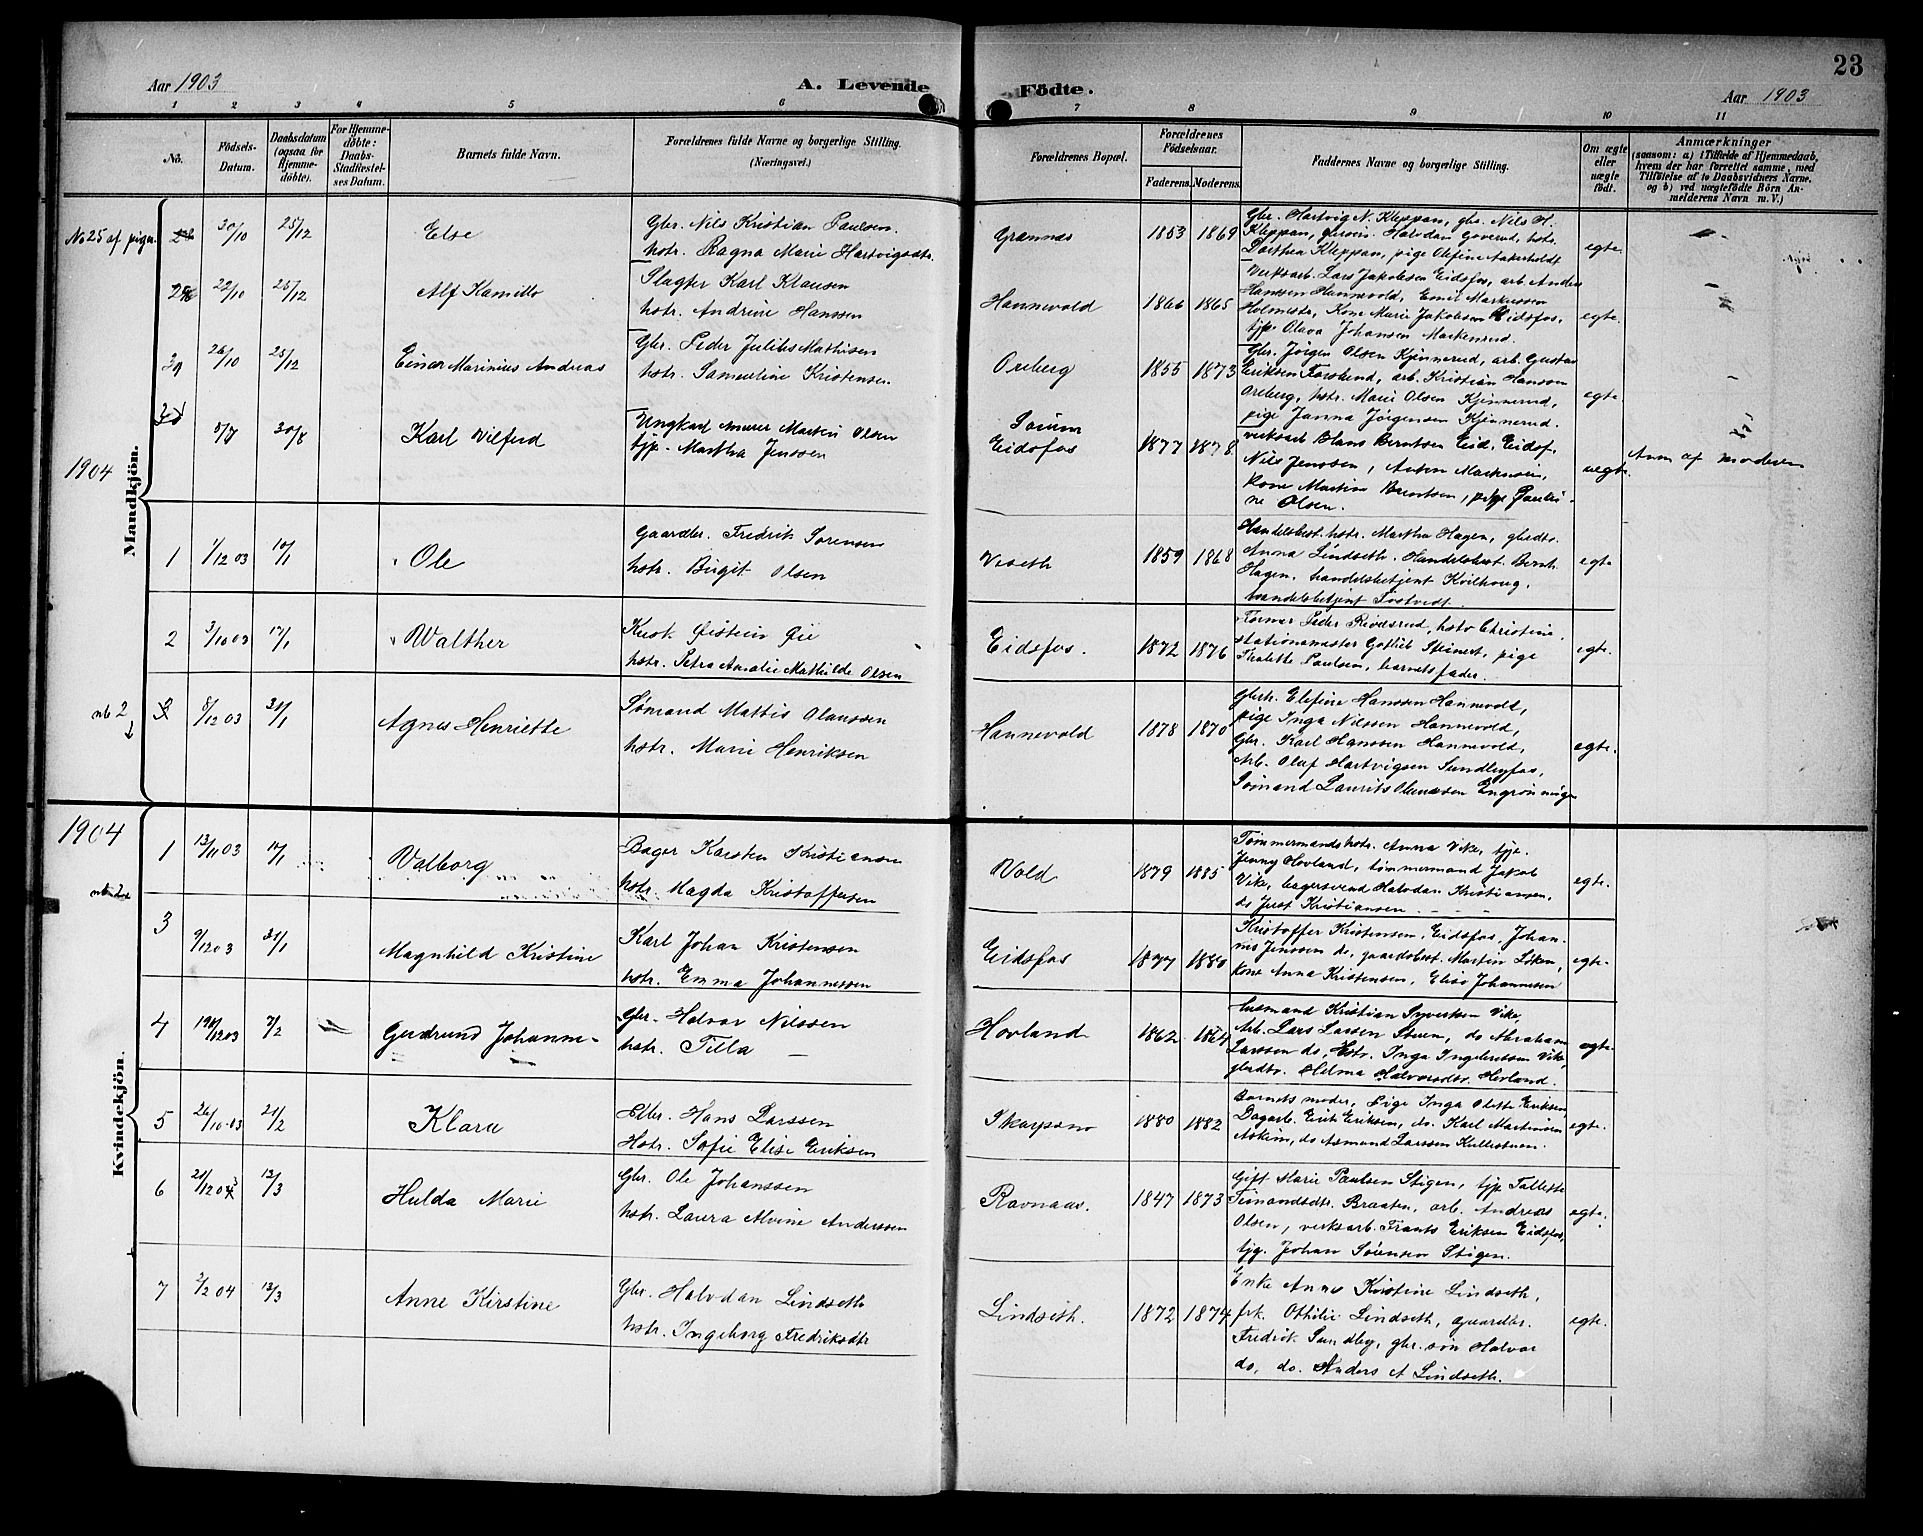 23
Aar 1903
A. Levende Födte.
Aar 1903
1 2 3 4 5 6 7 8 9 10 11
No.
Födsels-Datum.
Daabsdatum (ogsaa for Hjemme-döbte).
For Hjemme-döbte: Daabs-Stadfæstel-ses Datum.
Barnets fulde Navn.
Forældrenes fulde Navne og borgerlige Stilling. (Næringsvei.)
Forældrenes Bopæl.
Forældrenes Födselsaar.
Faderens. Moderens.
Faddernes Navne og borgerlige Stilling.
Om ægte eller uægte födt.
Anmærkninger
(saasom: a) i Tilfælde af Hjemmedaab,
hvem der har forrettet samme, med
Tilföielse af to Daabsvidners Navne.
og b) ved uægtefödte Börn An-
melderens Navn m. V.)
Mandkjön.
No 25 af piger 30/10 25/12 Else
Gbr. Nils Kristian Paulsen
hstr. Ragna Marie Hartvigsdtr.
Grännes 1853 1869
Gbr. Hartvig N. Kleppan, gbr. Nils H.
Kleppan, Halvdan Goverud, hstr.
Dorthea Kleppan, pige Olefine Aakerholdt
egte
22/10 25/12 Alf Kamillo
Slagter Karl Klausen
hstr. Andrine Hanssen
Hannevold 1866 1865
Verksarb. Lars Jakobsen Eidsfos, arb. Anders
Hanssen Hannevold, Emil Markussen
Holmestr., Kone Marie Jakobsen Eidsfos,
tjp. Olava Johansen
egte.
26/10 25/12 Einar Marinius Andreas
Gbr. Peder Julius Mathisen
hstr. Samueline Kristensen
Oreberg 1855 1873
Gbr. Jörgen Olsen Kjinnerud, arb. Gustav
Eriksen, arb. Kristian Hanson
Oreberg, hstr. Marie Olsen Kjinnerud,
pige Janna Jörgensen Kjinnerud.
egte.
5/7 30/8 Karl Wilferd
Ungkarl Murer Martin Olsen
tjp. Martha Jenssen
Sörum
Eidsfos 1877 1878
verksarb. Hans Berntsen Eid, Eidsf.
Nils Jenssen, Anton Markussen,
Kone Martin Berntsen, pige Pauli-
ne Olsen.
uegte.
Anm af moderen
1904
1 7/12 03 10/1 Ole
Gaardbr. Fredrik Sorensen
hstr. Birgit Olsen
Viseth 1859 1868
Handelsbest. hstr. Martha Hagen, gbrdtr.
Anna Lindseth. Handelsbest. Bernh.
Hagen, handelsbetjent Kvilhoug,
handelsbetjent Tostvedt.
egte
2 3/10 03 17/1 Walther
Kusk Öistein Öie
hstr. Petra Amalie Mathilde Olsen
Eidsfos. 1872 1876
Former Peder Riversrud, hstr Christine.
stationsmester Gotlieb Steinert, pige
Thalette Paulsen, barnets fader.
egte.
nb 2 3 8/12 03 31/1 Agnes Henriette
Sömand Mathis Olaussen
hstr. Marie Henriksen
Hannevold 1878 1870
Gbrk. Elefine Hanssen Hannevold,
pige Inga Nilssen Hannevold,
Gbr. Karl Hanssen Hannevold,
Arb. Oluf Hartvigsen Sundbyfos,
Sömand Laurits Olaussen
egte.
Kvindekjön.
1904
1 13/11 03 17/1 Valborg
Bager Karsten Kristiansen
hstr. Magda Kristoffersen
Vold 1879 1885
Tömmermandshstr. Anna Vike, tjp.
Jenny Hovland, tömmermand Jakob
Vike, bagersvend Halvdan Kristiansen,
do Just Kristiansen
egte.
3 9/12 03 31/1 Magnhild Kristine
Karl Johan Kristensen
hstr. Emma Johannessen
Eidsfos 1877 1880
Kristoffer Kristensen, Eidsfos, Johan-
nes Jenssen do, gaardbest. Martin Löken,
kone Anna Kristensen, Elise Johannesen
egte.
4 12 03 7/2 Gudrund Johanne
Gbr. Halvor Nilssen
hstr. Tilla —
Hovland 1862 1864
husmand Kristian Syversen Vike,
Arb. Lars Larssen Steen, do Abraham
Larssen do, Hstr. Inga Ingebretsen Vike
gbrdtr. Hilma Halvorsdtr. Hovland.
egte
5 26/10 03 21/2 Klara
Gbr. Hans Larssen
Hstr. Sofie Elise Eriksen
Skarpsno 1880 1882
Barnets moder, Pige Inga Olette Eriksen
Dagarb. Erik Eriksen, do. Karl Martinsen
Askim, do Asmund Larssen Kullestuen.
egte.
6 21/12 03 13/3 Hulda Marie
Gbr. Ole Johanssen
hstr. Laura Alvine Anderssen
Ravnaas. 1847 1873
Gift Marie Paulsen Stigen, tjp Tallette
Braaten, arb. Andreas
Olsen, verksarb. Frants Eriksen Eidsfos,
tjg. Johan Sörensen Stigen.
egte.
7 2/2 04 13/3 Anne Kirstine
Gbr. Halvdan Lindseth
hstr. Ingeborg Fredriksdtr
Lindseth. 1872 1874
Enke Anne Kristine Lindseth,
frk Othilie Lindseth, gaardbr.
Fredrik Sundby, gbr. sön Halvor
do, do. Anders A Lindseth.
egte.